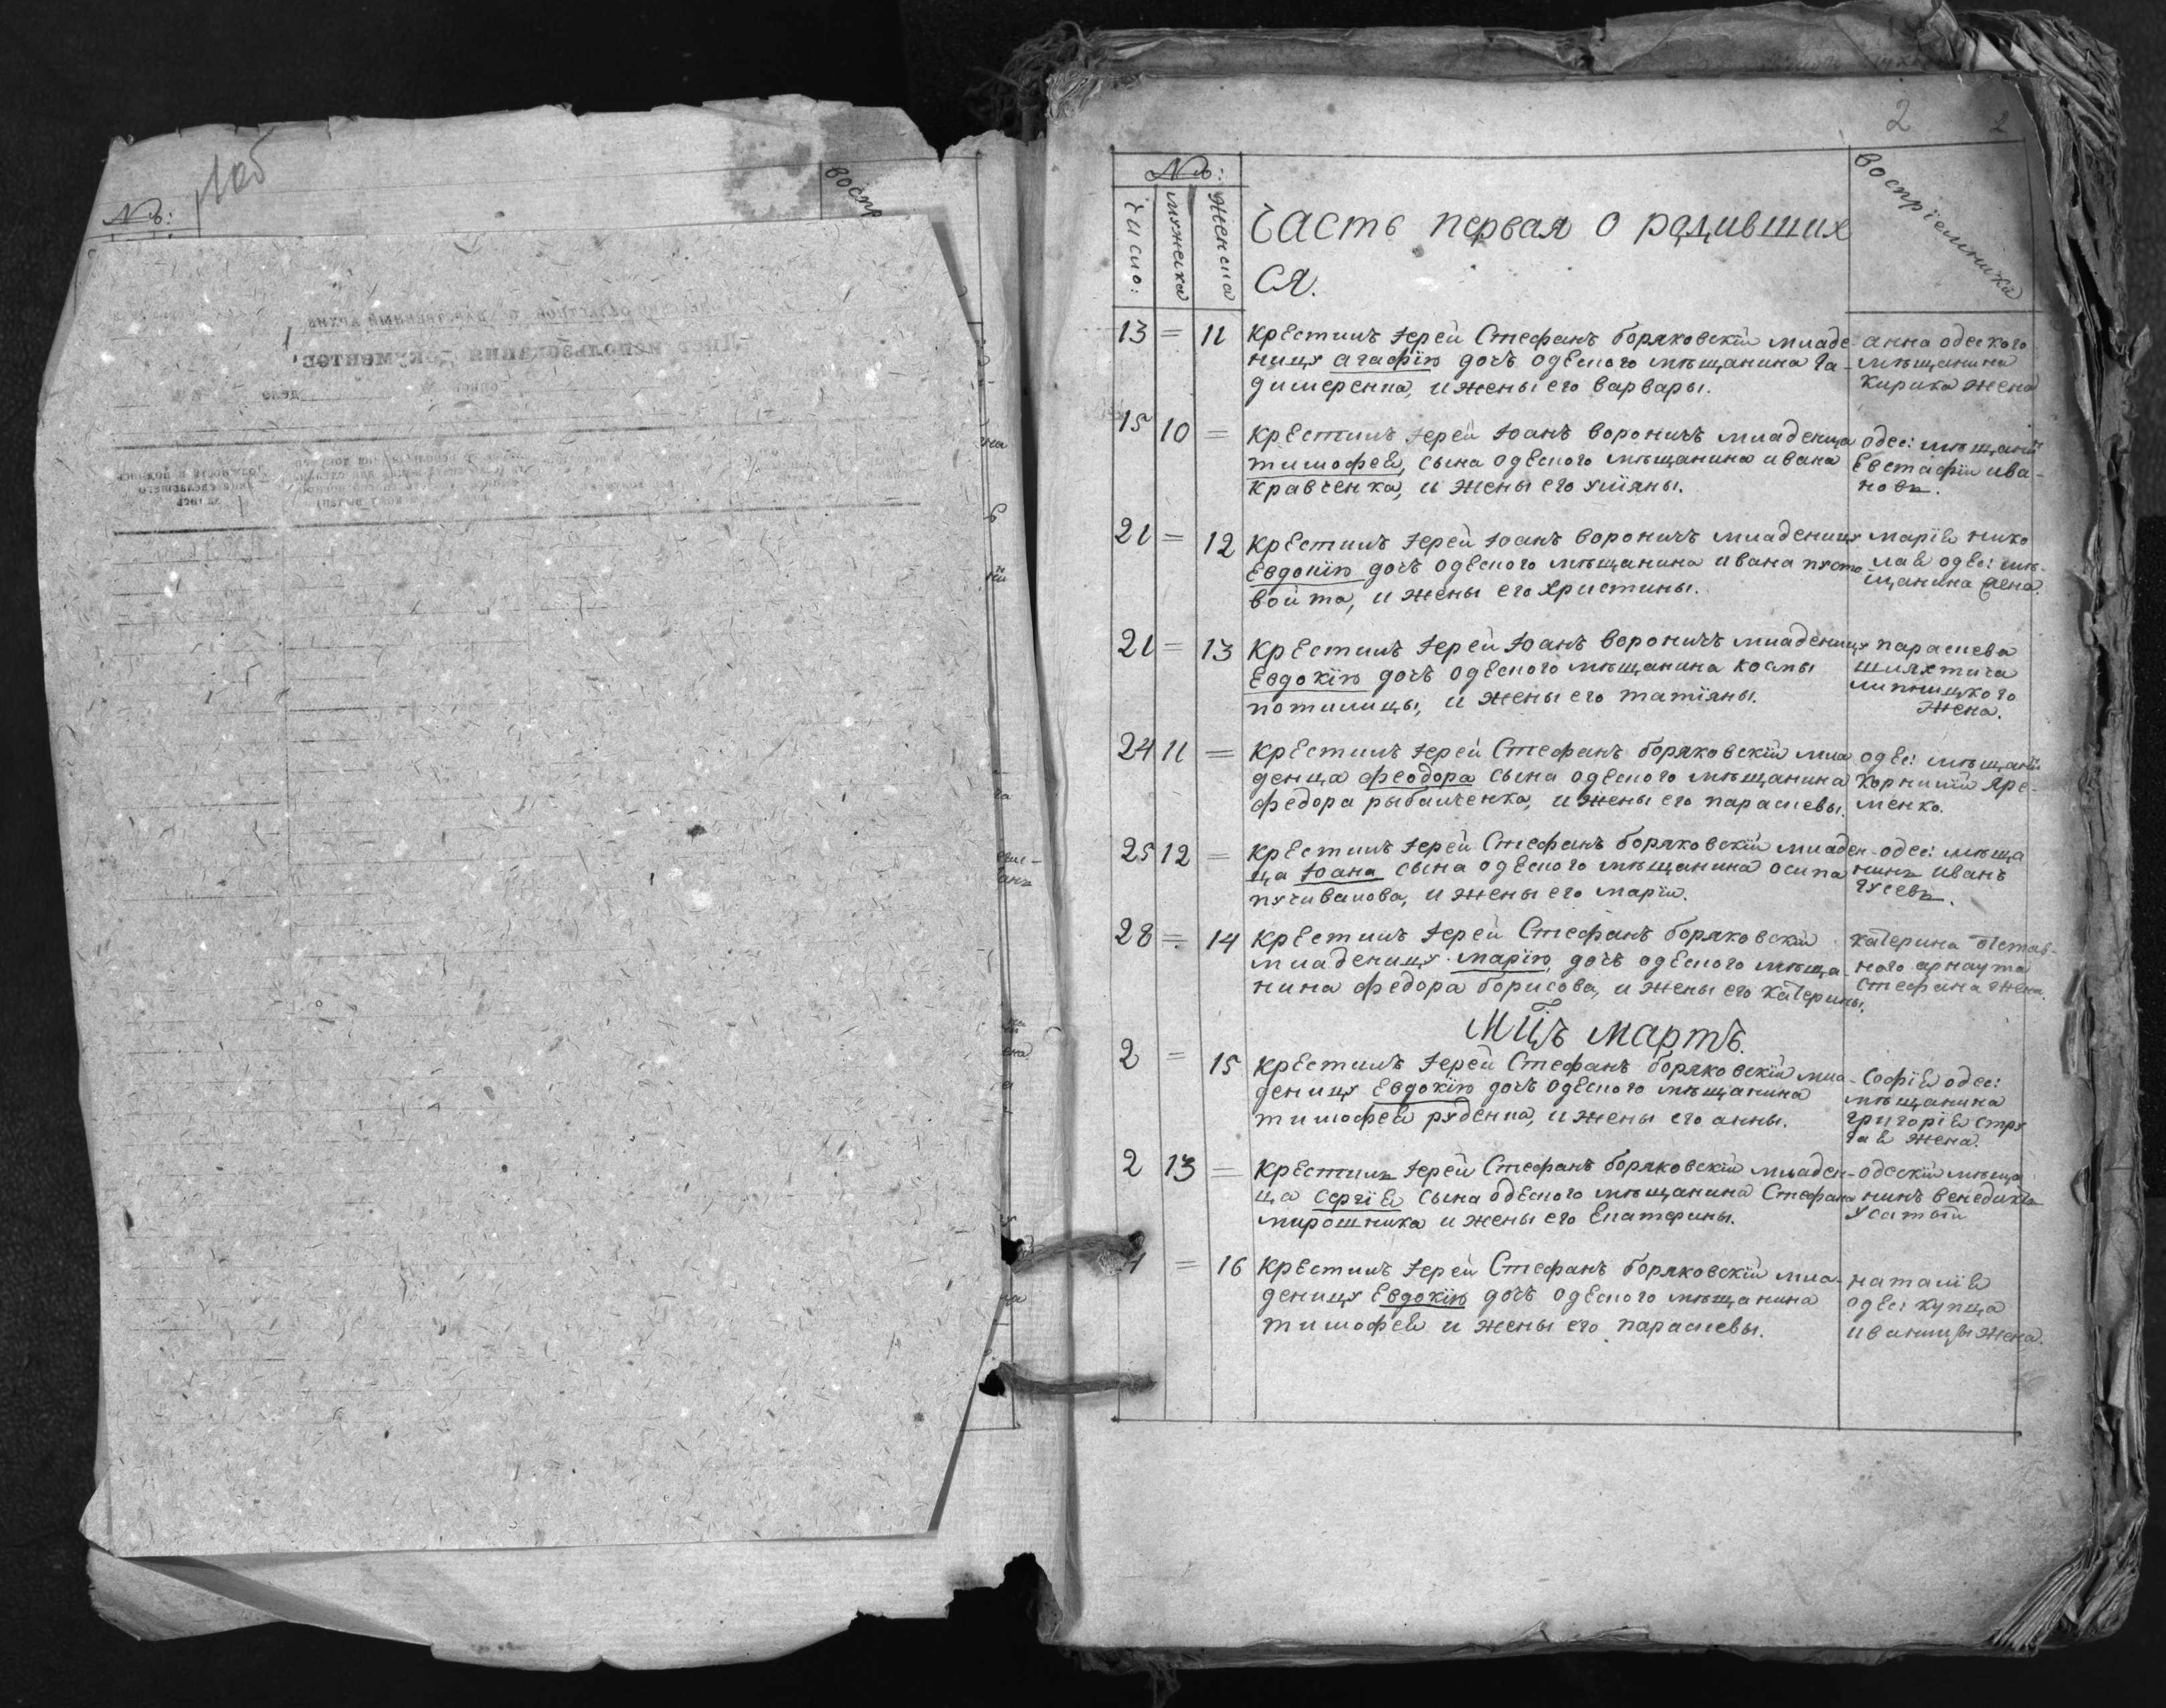 №:
воспр
2
2
№:
число:
мужеска
женска
Часть первая о родивших
ся.
воспріемники
13 = 11 Крестилъ Іерей Стефанъ Боряковскїй младе-
ницу Агафїю дочь одескаго мѣщанина Га-
димеренка, и жены его Варвары.
Анна одеского
мѣщанина
Кирика жена
15 10 = Крестилъ Іерей Іоанъ Вороничъ младенца
Тимофея, сына одеского мѣщанина Ивана
Кравченка, и жены его Улїяны.
одес: мѣщани
Евстафїй Ива-
новъ.
21 = 12 Крестилъ Іерей Іоанъ Вороничъ младеницу
Евдокїю дочь одеского мѣщанина Ивана Пусто-
войта, и жены его Христины.
Марїя Нико
лая одес: мѣ-
щанина жена.
21 = 13 Крестилъ Іерей Іоанъ Вороничъ младеницу
Евдокїю дочь одеского мѣщанина Космы
Потилицы, и жены его Татїяны.
Параскева
шляхтича
Липницкого
жена.
24 11 = Крестилъ Іерей Стефанъ Боряковскїй мла
денца Феодора сына одеского мѣщанина
Федора Рыбалченка, и жены его Параскевы.
одес: мѣщани
Корнилїй Яре-
менко.
25 12 = Крестилъ Іерей Стефанъ Боряковскїй младен-
ца Іоана сына одеского мѣщанина Осипа
Пучивалова, и жены его Марїи.
одес: мѣща
нинъ Иванъ
Гусевъ.
28 = 14 Крестилъ Іерей Стефанъ Боряковскїй
младеницу Марїю, дочь одеского мѣща-
нина Федора Борисова, и жены его Катерины.
Катерина отстав-
ного арнаута
Стефана жена.
Мцъ Мартъ.
2 = 15 Крестилъ Іерей Стефанъ Боряковскїй мла-
деницу Евдокїю дочь одеского мѣщанина
Тимофея Руденка, и жены его Анны.
Софїя одес:
мѣщанина
Григорїя Стру
гая жена.
2 13 = Крестилъ Іерей Стефанъ Боряковскїй младен-
ца Сергїя сына одеского мѣщанина Стефана
Мирошника и жены его Екатерины.
одескїй мѣща
нинъ Венедиктъ
Усатый
4 = 16 Крестилъ Іерей Стефанъ Боряковскїй мла-
деницу Евдокїю дочь одеского мѣщанина
Тимофея и жены его Параскевы.
Наталїя
одес: купца
Иваницы жена.